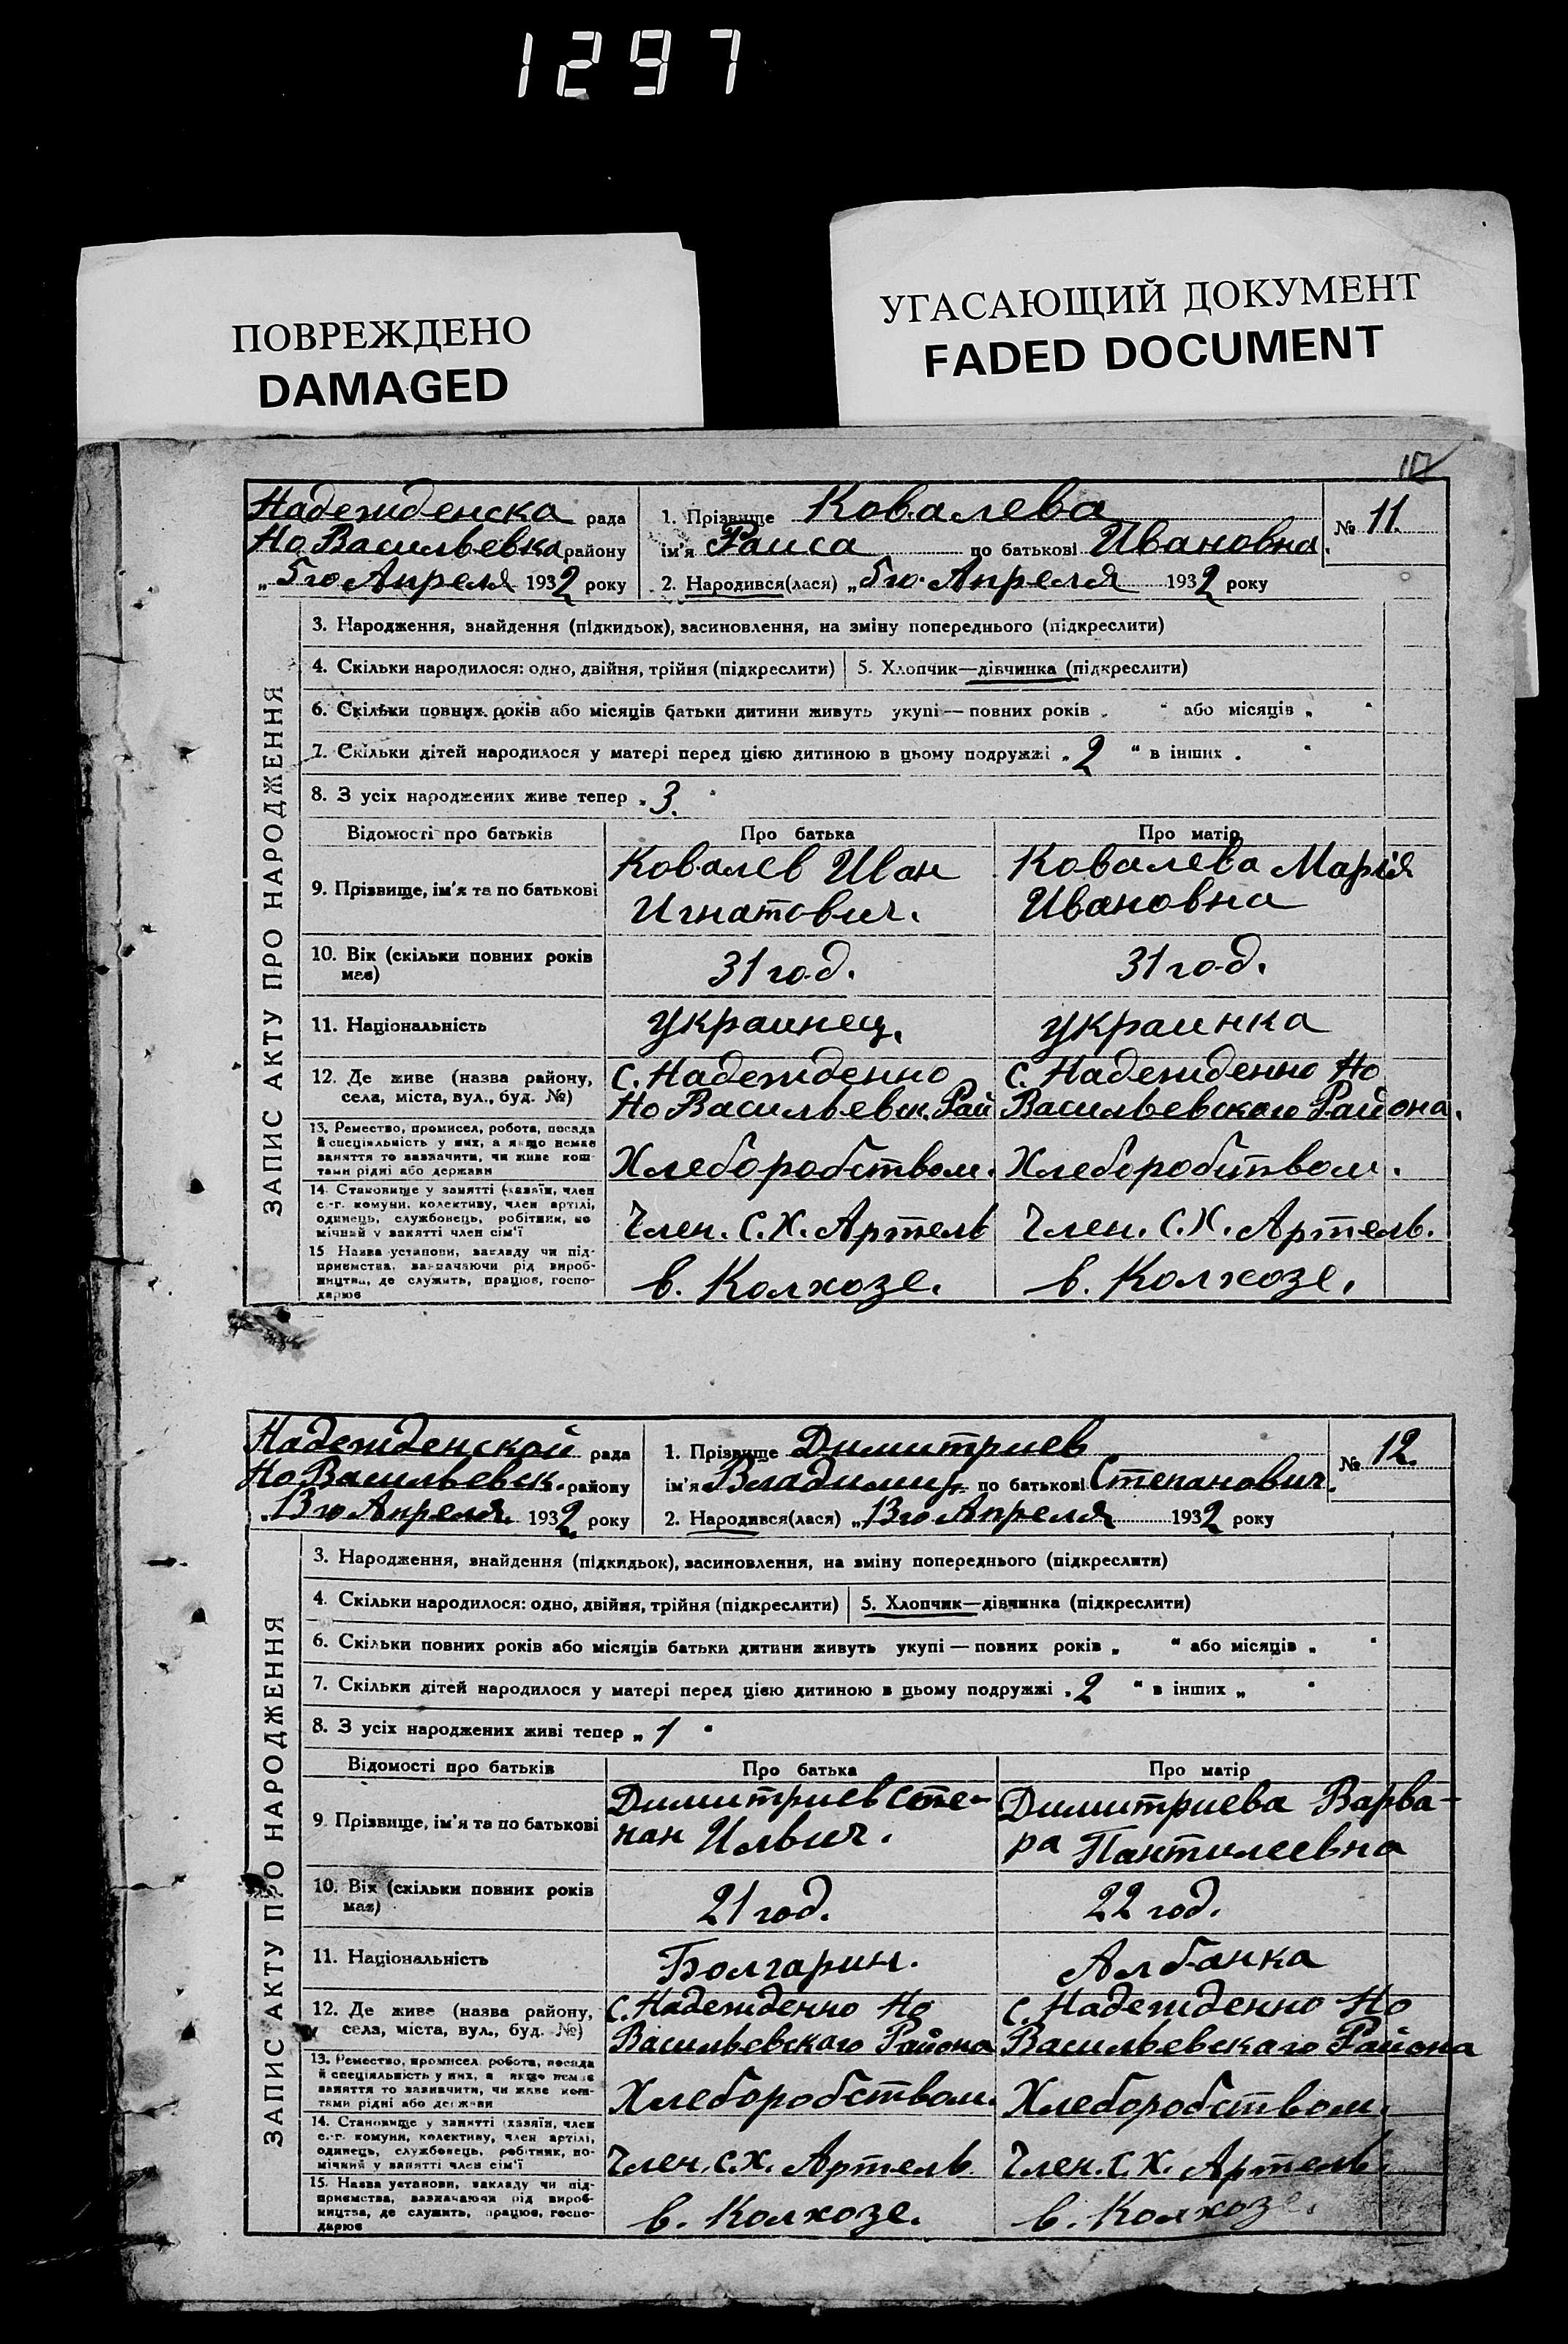 1297
ПОВРЕЖДЕНО
DAMAGED
УГАСАЮЩИЙ ДОКУМЕНТ
FADED DOCUMENT
ЗАПИС АКТУ ПРО НАРОДЖЕННЯ
Надежденска рада
Но Васильевка району
„ 5го Апреля 1932 року
1. Прізвище Ковалева
ім'я Раиса по батькові Ивановна.
№ 11.
2. Народився(лася) „ 5го Апреля 1932 року
3. Народження, знайдення (підкидьок), засиновлення, на зміну попереднього (підкреслити)
4. Скільки народилося: одно, двійня, трійня (підкреслити) 5. Хлопчик—дівчинка (підкреслити)
6. Скільки повних років або місяців батьки дитини живуть укупі — повних років „ “ або місяців „ “
7. Скільки дітей народилося у матері перед цією дитиною в цьому подружжі „ 2 “ в інших „ “
8. З усіх народжених живе тепер „ 3. “
Відомості про батьків Про батька Про матір
9. Прізвище, ім'я та по батькові
Ковалев Иван
Игнатович.
Ковалева Марія
Ивановна
10. Вік (скільки повних років
має)
31 год. 31 год.
11. Національність Украинец. Украинка
12. Де живе (назва району,
села, міста, вул., буд. №)
с. Надежденно
Но Васильевск. Рай
с. Надежденно Но
Васильевского Района.
13. Ремество, промисел, робота, посада
й спеціяльність у них, а якщо немає
заняття то зазначити, чи живе кош-
тами рідні або держави
Хлеборобством. Хлеборобством.
14. Становище у занятті (хазяїн, член
с.-г. комуни, колективу, член артілі,
одинець, службонець, робітник, по
мічний у занятті член сім'ї
Член. С. Х. Артель Член. С. Х. Артель.
15 Назва установи, закладу чи під-
приємства, зазначаючи рід вироб-
ництва, де служить, працює, госпо-
дарює
в. Колхозе. в. Колхозе.
ЗАПИС АКТУ ПРО НАРОДЖЕННЯ
Надежденской рада
Но Васильевск. району
„ 13го Апреля. 1932 року
1. Прізвище Димитриев
ім'я Владимир по батькові Степанович.
№ 12.
2. Народився(лася) „ 13го Апреля 1932 року
3. Народження, знайдення (підкидьок), засиновлення, на зміну попереднього (підкреслити)
4. Скільки народилося: одно, двійня, трійня (підкреслити) 5. Хлопчик—дівчинка (підкреслити)
6. Скільки повних років або місяців батьки дитини живуть укупі — повних років „ “ або місяців „ “
7. Скільки дітей народилося у матері перед цією дитиною в цьому подружжі „ 2 “ в інших „ “
8. З усіх народжених живі тепер „ 1 “
Відомості про батьків Про батька Про матір
9. Прізвище, ім'я та по батькові
Димитриев Сте-
пан Ильич.
Димитриева Варва-
ра Пантилеевна
10. Вік (скільки повних років
має)
21 год. 22 год.
11. Національність Болгарин. Албанка
12. Де живе (назва району,
села, міста, вул., буд. №)
с. Надежденно Но
Васильевского Района
с. Надежденно Но
Васильевскаго Района
13. Ремество, промисел, робота, посада
й спеціяльність у них, а якщо немає
заняття то зазначити, чи живе кош-
тами рідні або держави
Хлеборобством. Хлеборобством.
14. Становище у занятті (хазяїн, член
с.-г. комуни, колективу, член артілі,
одинець, службовець, робітник, по-
мічний у занятті член сім'ї
Член. с. х. Артель Член. С. Х. Артель.
15. Назва установи, закладу чи під-
приємства, зазначаючи рід вироб-
ництва, де служить, працює, госпо-
дарює
в. Колхозе. в. Колхозе.